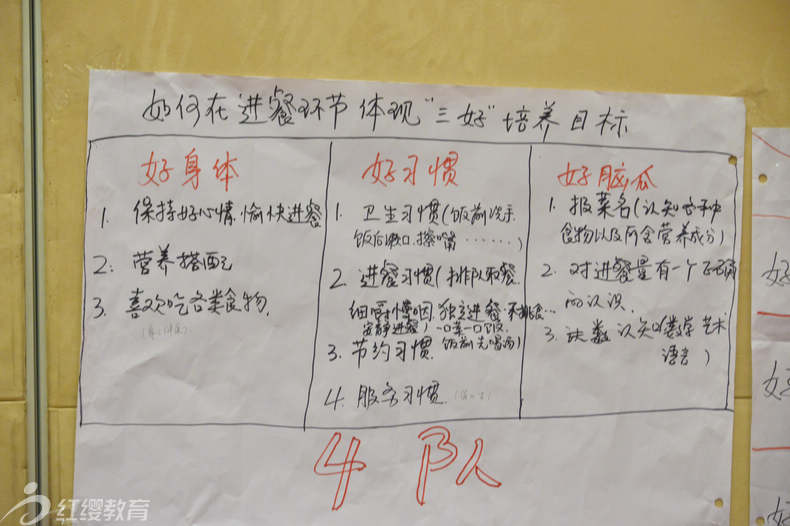 如何在"进餐环节体现"三好"培养目标
好身体
1. 保持好心情,愉快进餐
2. 营养搭配
3. 喜欢吃各类食物.
好习惯
1. 卫生习惯(饭前洗手
饭后漱口、擦嘴……)
2. 进餐习惯(排队取餐
细嚼慢咽.独立进餐.不挑食…
安静进餐)一口菜一口饭.
饭前先喝汤)
3. 节约习惯.
4. 服务习惯
好脑瓜
1. 报菜名(认知各种
食物以及所含营养成分)
2. 对进餐量有一个正确
的认识.
3. 认知(数学 艺术
语言)
4 队
红缨教育